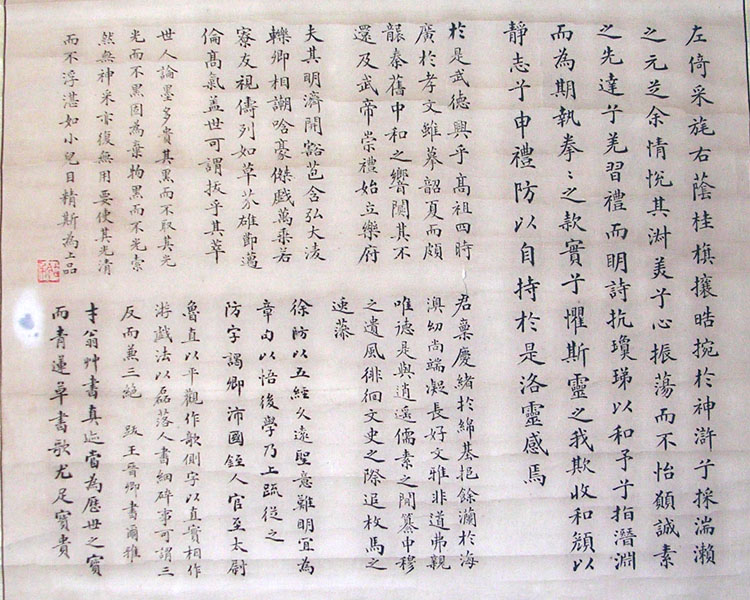 左倚采旄右蔭桂旗攘皓捥於神滸兮採湍瀨
之元芝余情悅其淑美兮心振蕩而不怡願誠素
之先達兮羌習禮而明詩抗瓊珶以和予兮指潛淵
而為期執拳〻之款實兮懼斯靈之我欺收和顏以
靜志兮申禮防以自持於是洛靈感焉
於是武德興乎高祖四時
廣於孝文雖摹韶夏而頗
襲秦舊中和之響闃其不
還及武帝崇禮始立樂府
夫其明濟開豁苞含弘大凌
轢卿相謿哈豪傑戲萬乘若
寮友視儔列如草芥雄節邁
倫高氣蓋世可謂拔乎其萃
世人論墨多貴其黑而不取其光
光而不黑固為棄物黑而不光索
然無神采亦復無用要使其光清
而不浮湛如小兒目精斯為上品
君稟慶緒於綿基挹餘瀾於海
澳幼尚端凝長好文雅非道弗親
唯德是與逍遥儒素之間纂申穆
之遺風徘徊文史之際追枚馬之
速藻
徐防以五經久遠聖意難明宜為
章句以悟後學乃上疏從之
防字謁卿沛國銍人官至太尉
魯直以平觀作欹側字以真實相作
游戲法以磊落人書細碎事可謂三
反而兼三絕 跋王晉卿書爾雅
才翁艸書真迹當為歷世之寶
而青蓮草書歌尤足寶貴